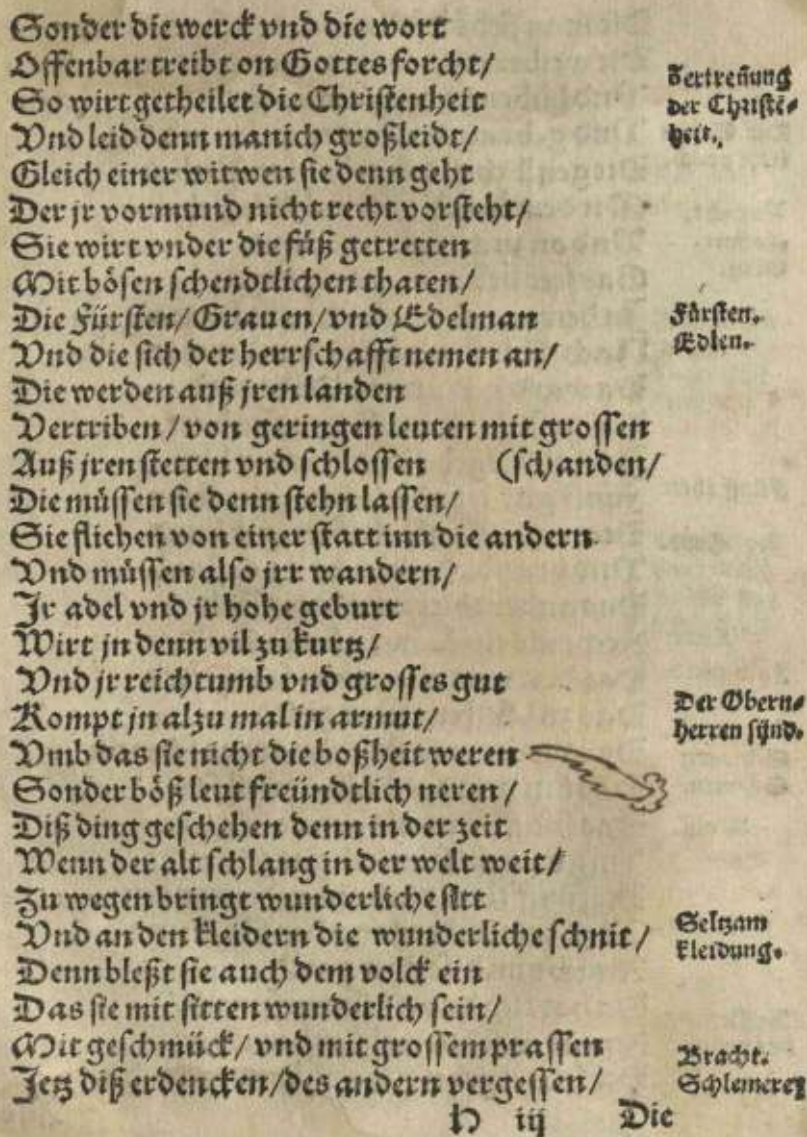 Sonder die werck vnd die wort
Offenbar treibt on Gottes forcht/
So wirt getheilet die Christenheit
Vnd leid denn manich groß leidt/
Gleich einer witwen sie denn geht
Der jr vormund nicht recht vorsteht/
Sie wirt vnder die füß getretten
Mit bösen schendtlichen thaten/
Die Fürsten/ Grauen/ vnd Edelman
Vnd die sich der herrschafft nemen an/
Die werden auß jren landen
Vertriben/ von geringen leuten mit grossen
Auß jren stetten vnd schlossen (schanden/
Die müssen sie denn stehn lassen/
Sie fliehen von einer statt inn die andern
Vnd müssen also jrr wandern/
Jr adel vnd jr hohe geburt
Wirt jn denn vil zu kurtz/
Vnd jr reichtumb vnd grosses gut
Kompt jn alzu mal in armut/
Vmb das sie nicht die boßheit weren
Sonder böß leut freündtlich neren/
Diß ding geschehen denn in der zeit
Wenn der alt schlang in der welt weit/
Zu wegen bringt wunderliche sitt
Vnd an den kleidern die wunderliche schnit/
Denn bleßt sie auch dem volck ein
Das sie mit sitten wunderlich sein/
Mit geschmück/ vnd mit grossem prassen
Jetz diß erdencken/ des andern vergessen/
H iij Die
Zertreñung
der Christē⸗
heit.
Fürsten.
Edlen.
Der Obern⸗
herren sünd.
Seltzam
kleidung.
Bracht.
Schlemerey